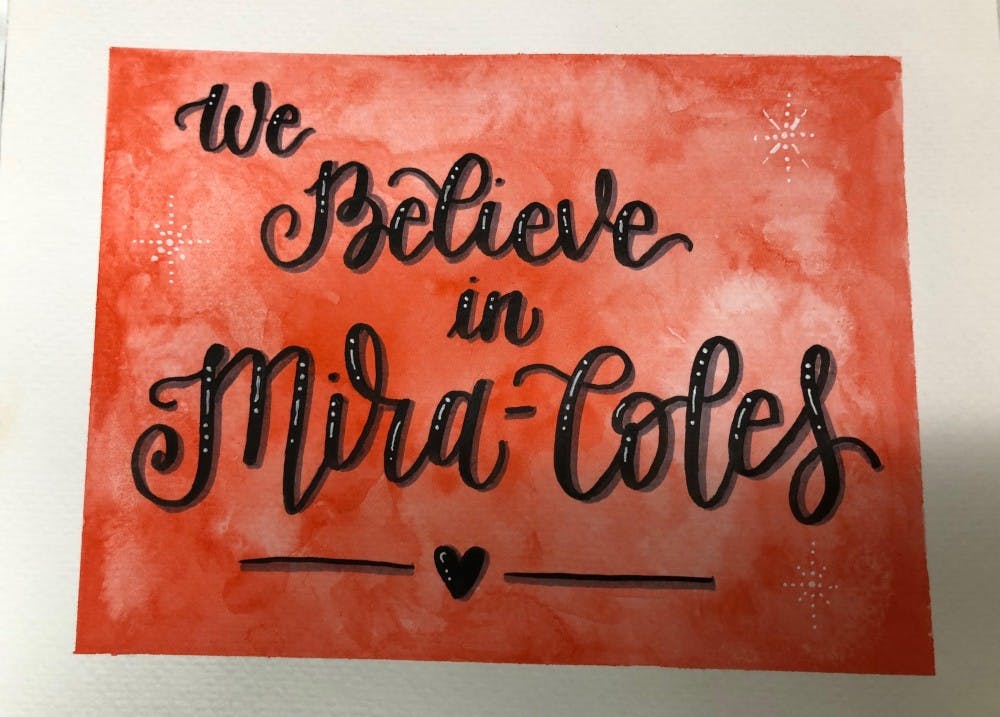 We
Believe
in
Mira-Coles